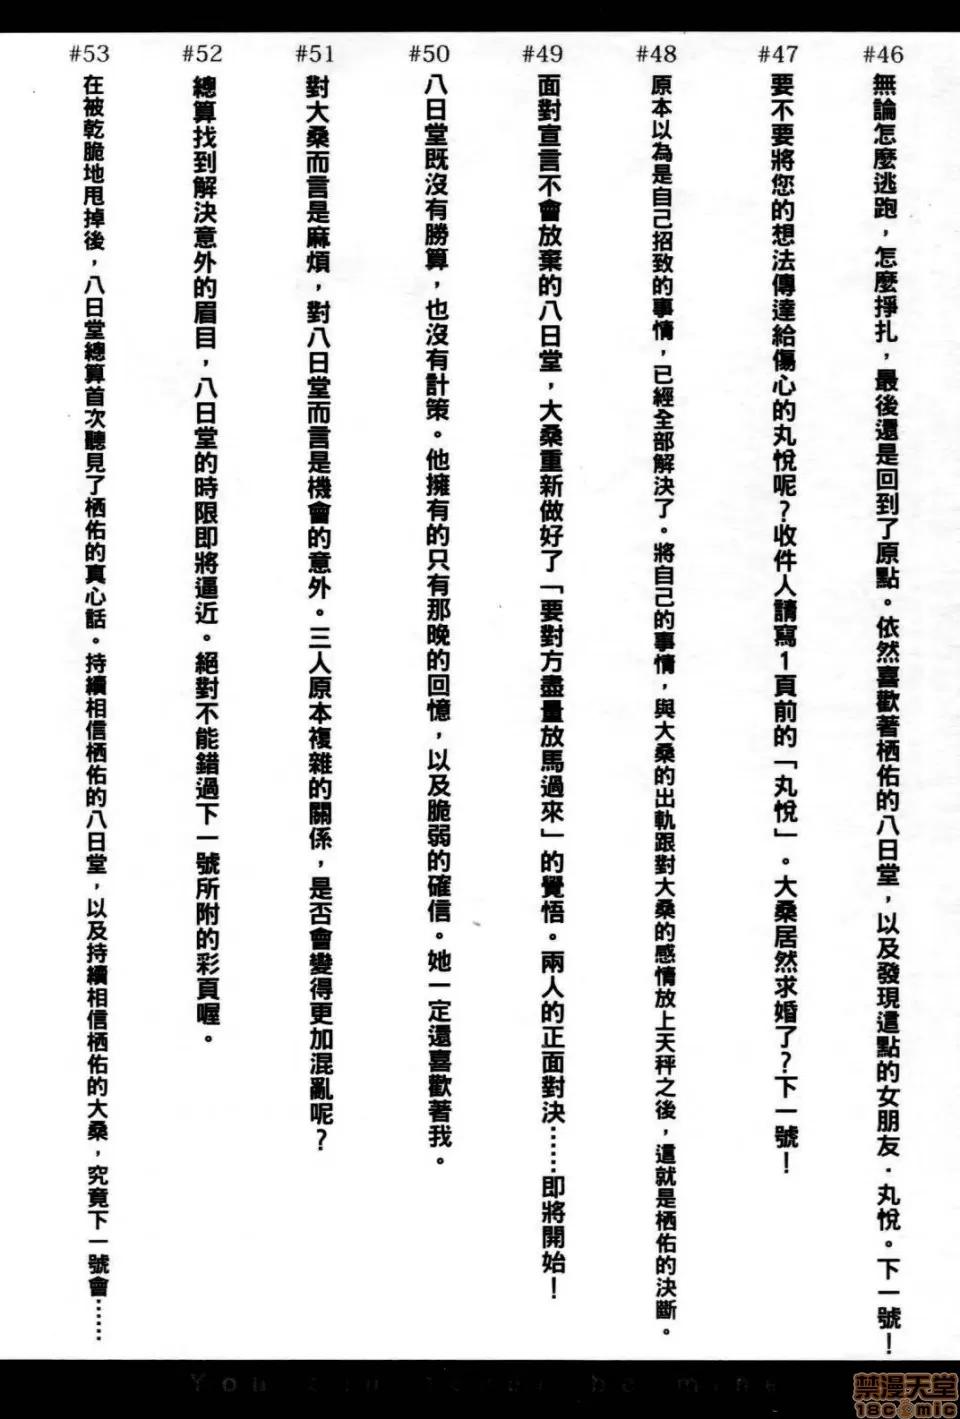 #46
無論怎麼逃跑，怎麼掙扎，最後還是回到了原點。依然喜歡著栖佑的八日堂，以及發現這點的女朋友．丸悅。下一號！
#47
要不要將您的想法傳達給傷心的丸悅呢？收件人請寫1頁前的「丸悅」。大桑居然求婚了？下一號！
#48
原本以為是自己招致的事情，已經全部解決了。將自己的事情，與大桑的出軌跟對大桑的感情放上天秤之後，這就是栖佑的決斷。
#49
面對宣言不會放棄的八日堂，大桑重新做好了「要對方盡量放馬過來」的覺悟。兩人的正面對決……即將開始！
#50
八日堂既沒有勝算，也沒有計策。他擁有的只有那晚的回憶，以及脆弱的確信。她一定還喜歡著我。
#51
對大桑而言是麻煩，對八日堂而言是機會的意外。三人原本複雜的關係，是否會變得更加混亂呢？
#52
總算找到解決意外的眉目，八日堂的時限即將逼近。絕對不能錯過下一號所附的彩頁喔。
#53
在被乾脆地甩掉後，八日堂總算首次聽見了栖佑的真心話。持續相信栖佑的八日堂，以及持續相信栖佑的大桑，究竟下一號會……
You can never be mine
禁漫天堂
18comic.org